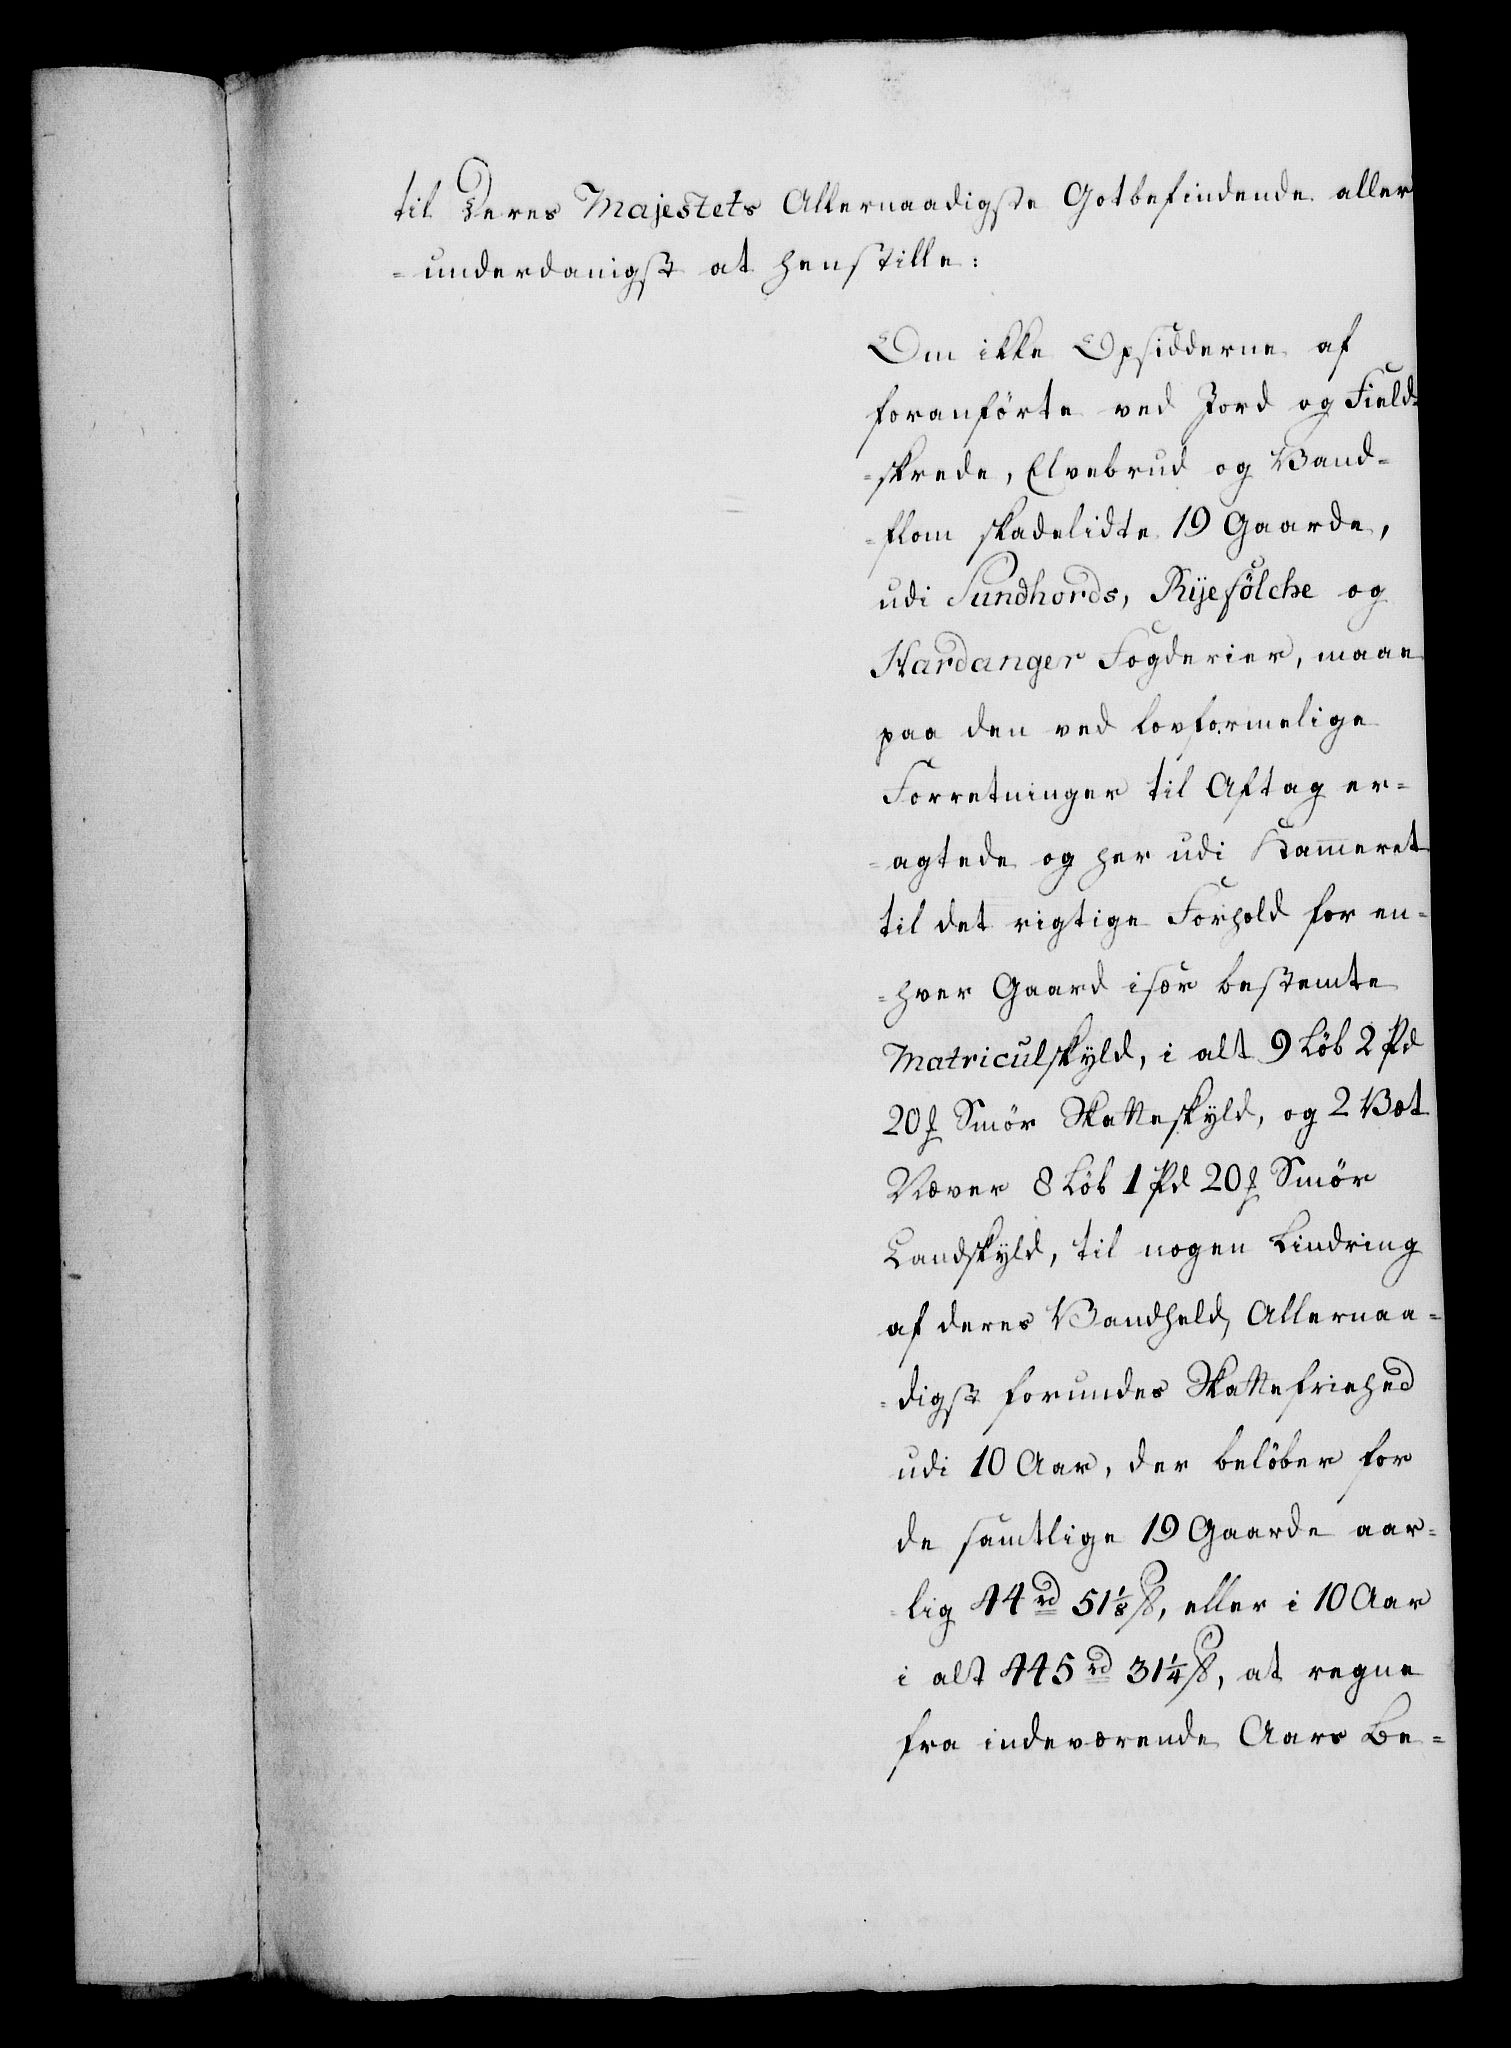 til Deres Majestets Allernaadigste Gotbefindende aller
=underdanigst at henstille:
Om ikke Opsidderne af
foranførte ved Jord og Field=
=skrede, Elvebrud og Vand=
=flom skadelidte 19 Gaarde,
udi Sundhords, Ryefølche og
Hardanger Fogderier, maae
paa den ved lovformelige
Forretninger til Aftag er=
=agtede og her udi Kam̅eret
til det rigtige Forhold for en=
=hver Gaard især bestemte
Matriculskyld, i alt 9 Løb 2 Pd
20 ℔ Smør Skatteskyld, og 2 Væt
Næver 8 Løb 1 Pd 20 ℔ Smør
Landskyld, til nogen Lindring
af deres Vandheld, Allernaa=
=digst forundes Skattefriehed
udi 10 Aar, der beløber for
de samtlige 19 Gaarde aar=
=lig 44 rd 51⅛ ß, eller i 10 Aar
i alt 445 rd 31¼ ß, at regne
fra indeværende Aars Be=